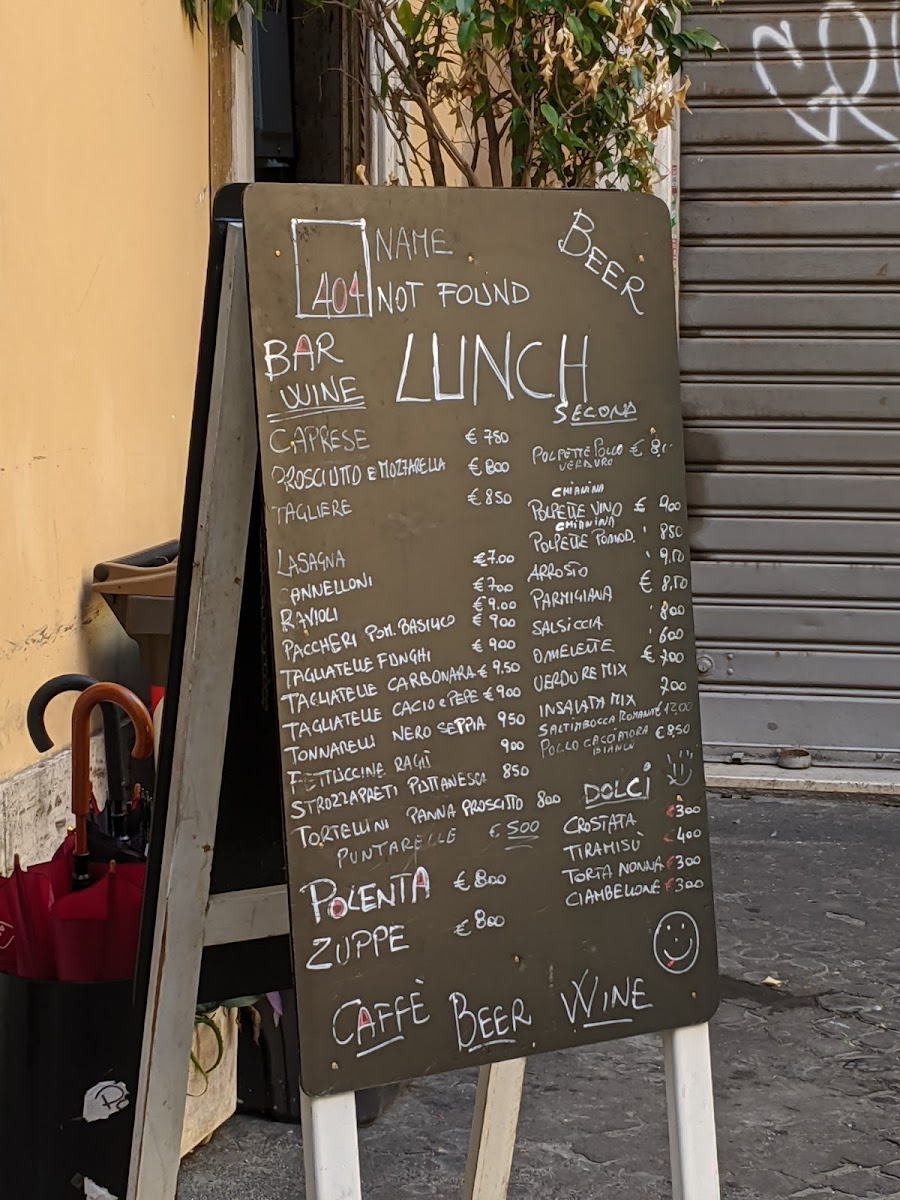 NAME
404 NOT FOUND
BEER
BAR
WINE
LUNCH
CAPRESE € 750
PROSCIUTTO E MOZZARELLA € 800
TAGLIERE € 850
LASAGNA €7.00
CANNELLONI €700
RAVIOLI €9.00
PACCHERI POM. BASILICO € 900
TAGLIATELLE FUNGHI € 900
TAGLIATELLE CARBONARA € 9.50
TAGLIATELLE CACIO e PEPE € 900
TONNARELLI NERO SEPPIA 950
FETTUCCINE RAGÙ 900
STROZZAPRETI PUTTANESCA 850
TORTELLINI PANNA PROSCIUTTO 800
PUNTARELLE € 500
POLENTA € 800
ZUPPE € 800
SECOND
POLPETTE POLLO € 8,
VERDURO
CHIANINA
POLPETTE VINO € 900
CHIANINA
POLPETTE POMOD. ' 850
ARROSTO '
PARMIGIANA €
SALSICCIA ' 800
OMELETTE ' 600
VERDURE MIX €
INSALATA MIX
SALTIMBOCCA ROMANA € 12.00
POLLO CACCIATORA €8,50
BIANCO
DOLCI
CROSTATA €300
TIRAMISÙ €400
TORTA NONNA €300
CIAMBELLONE €300
CAFFÈ BEER WINE